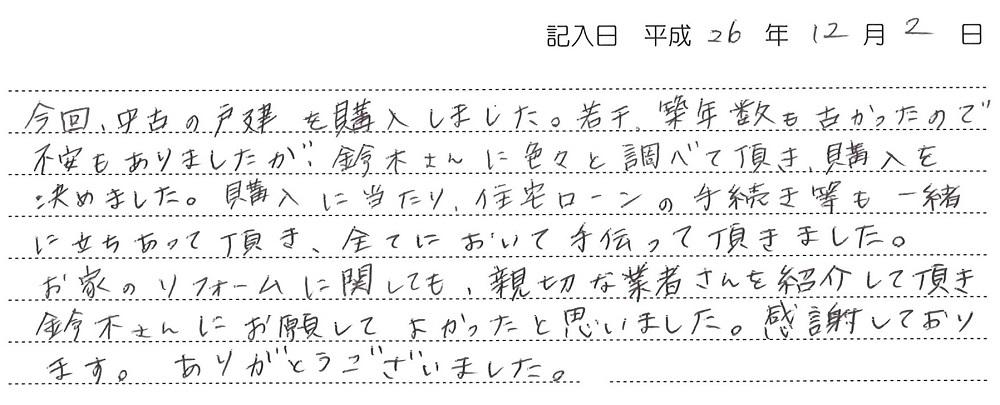 記入日 平成 26 年 12 月 2 日
今回、中古の戸建を購入しました。若干、築年数も古かったので
不安もありましたが、鈴木さんに色々と調べて頂き、購入を
決めました。購入に当たり、住宅ローンの手続き等も一緒
に立ちあって頂き、全てにおいて手伝って頂きました。
お家のリフォームに関しても、親切な業者さんを紹介して頂き
鈴木さんにお願してよかったと思いました。感謝しており
ます。ありがとうございました。